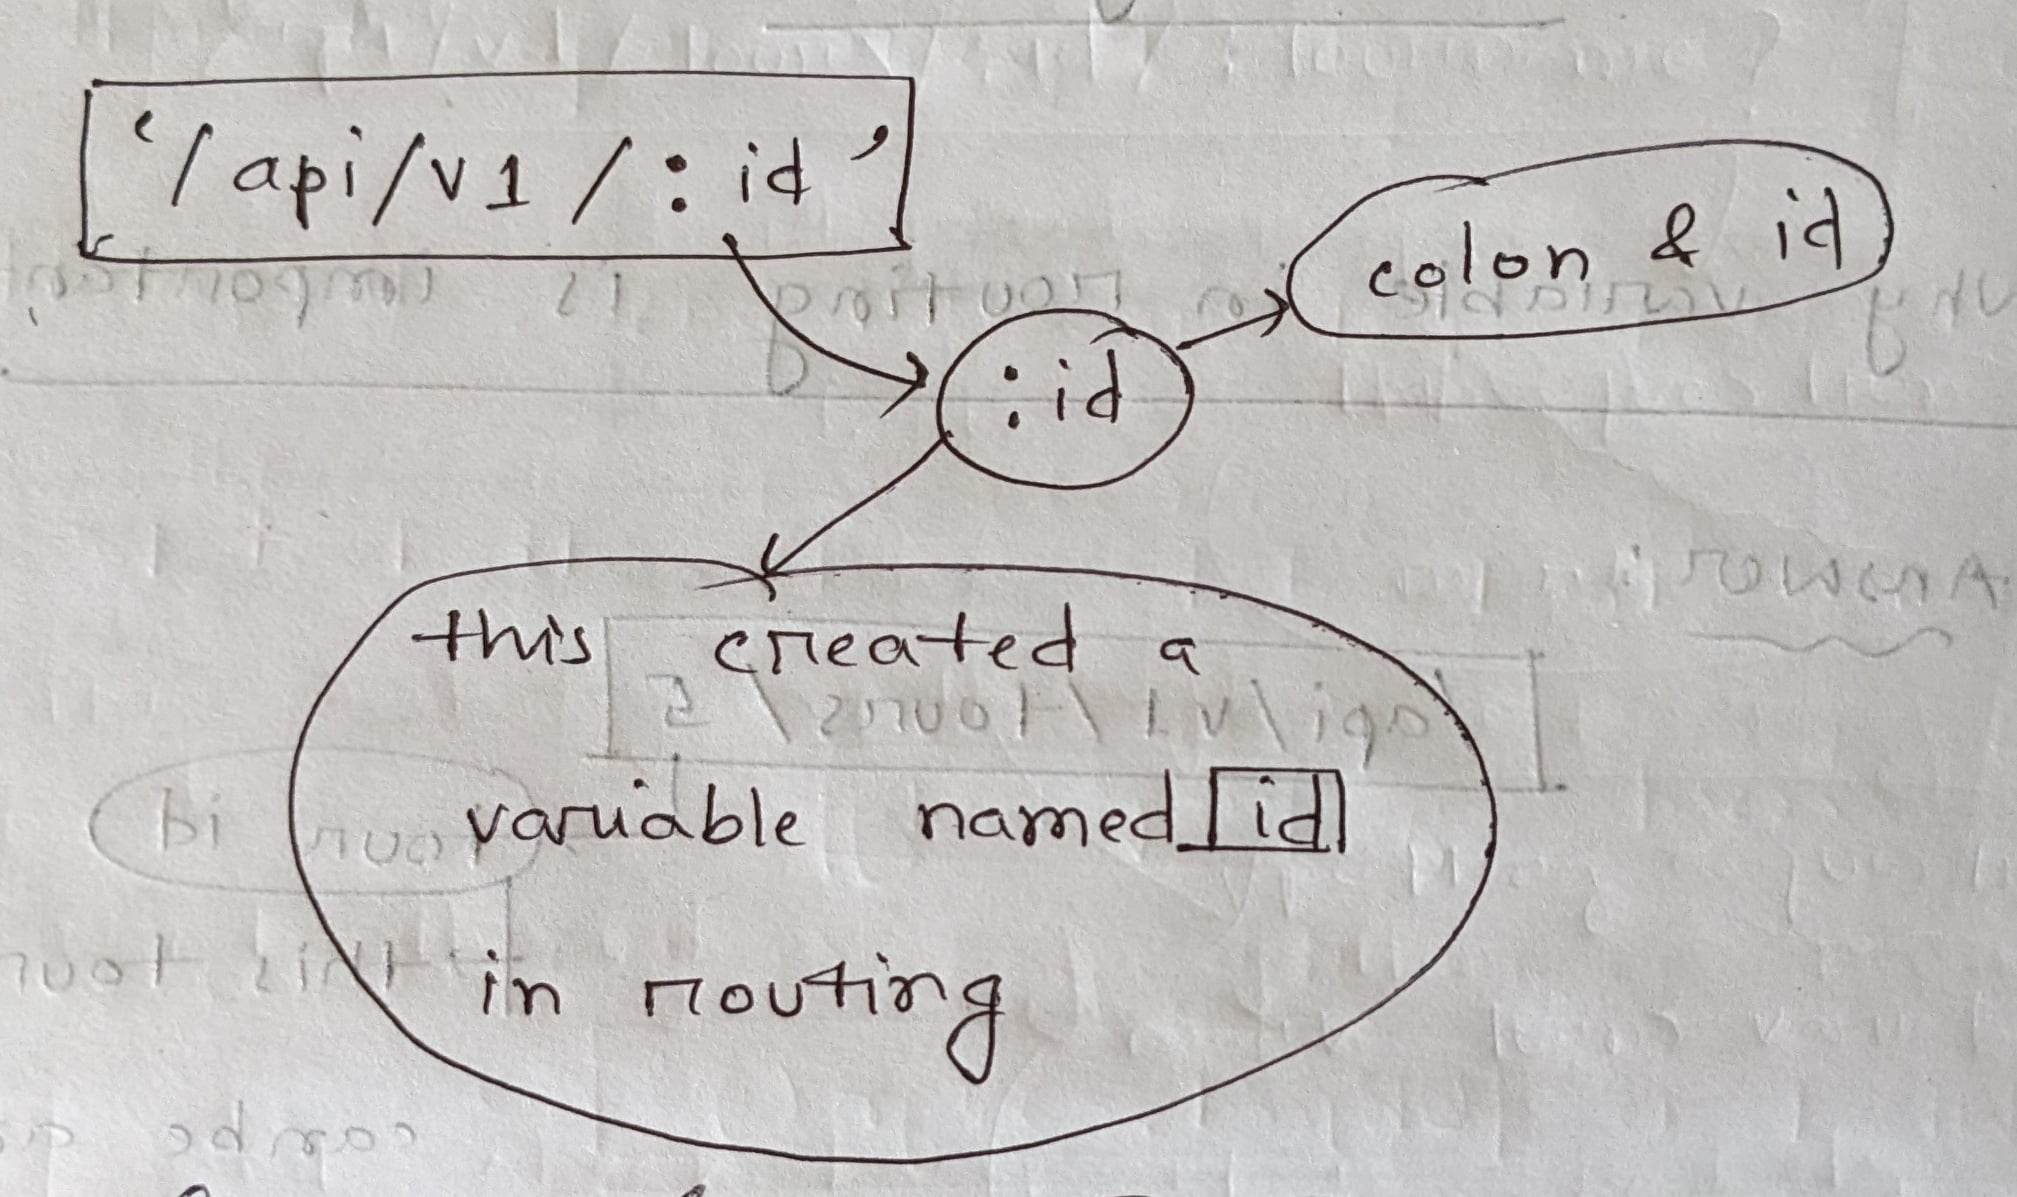 '/api/v1/:id'
colon & id
:id
this created a
variable named id
in routing